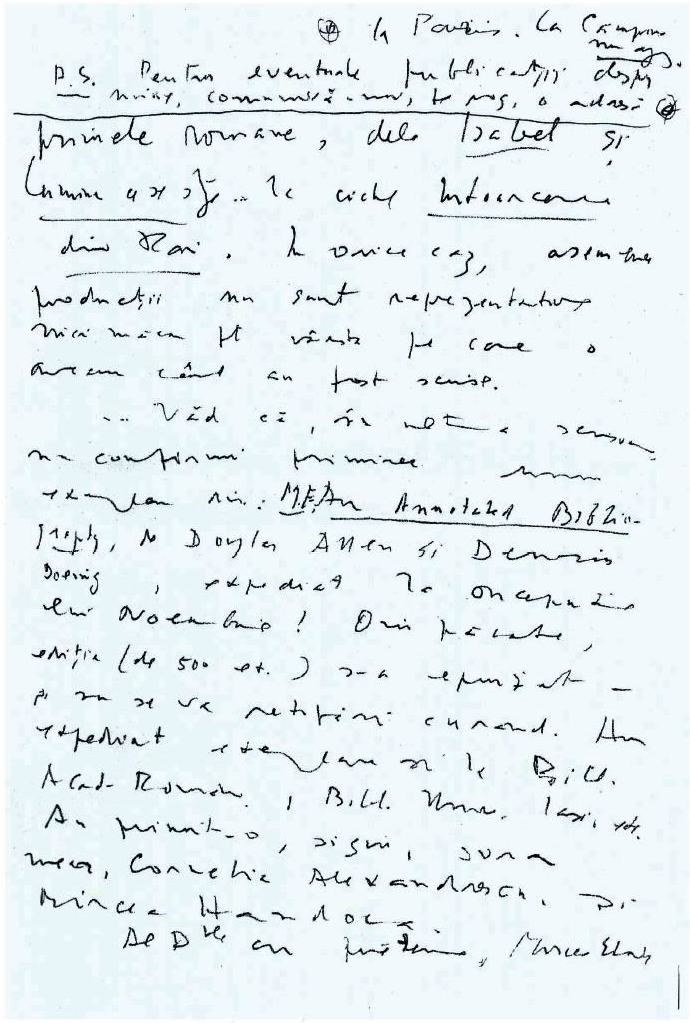 la Paris. La Câmpina
nu aj.
P.S. Pentru eventuale publicații despre
mine, comunică-mi, te rog, o adresă
primele romane, dela Isabel și
Lumina ce se stinge.. la ciclul Întoarcerea
din Rai. În orice caz, asemenea
producții nu sunt reprezentative
nici măcar pt vârsta pe care o
aveam când au fost scrise.
... Văd că, în ultima scrisoare,
nu confirmi primirea
exemplar din: M.E. An Annotated Biblio-
graphy, de Douglas Allen și Dennis
Doeing, expediat la începutul
lui Noembrie! Din păcate,
ediția (de 500 ex.) s-a epuizat —
și nu se va retipări curând. Am
expediat exemplare și la Bibl.
Acad. Române, Bibl. Univ. Iași, etc.
Au primit-o, sigur, sora
mea, Cornelia Alexandrescu, și
Mircea Handoca
Al Dtale cu prietenie, Mircea Eliade